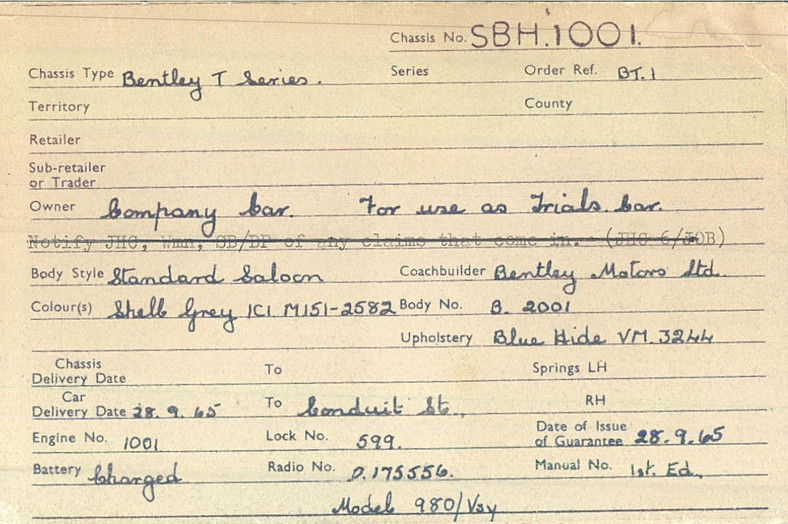 Chassis No. SBH.1001.
Chassis Type Bentley T Series. Series Order Ref. BT.1
Territory County
Retailer
Sub-retailer
or Trader
Owner Company Car. For use as Trials Car.
Notify JHG, Wmn, SB/BP of any claims that come in. - (JHG 6/JOB)
Body Style Standard Saloon Coachbuilder Bentley Motors Ltd.
Colour(s) Shell Grey ICI M151-2582 Body No. B. 2001
Upholstery Blue Hide VM. 3244
Chassis
Delivery Date To Springs LH
Car
Delivery Date 28.9.65 To Conduit St., RH
Engine No. 1001 Lock No. 599. Date of Issue
of Guarantee 28.9.65
Battery Charged Radio No. D.175556. Manual No. 1st. Ed.
Model 980/Vsy